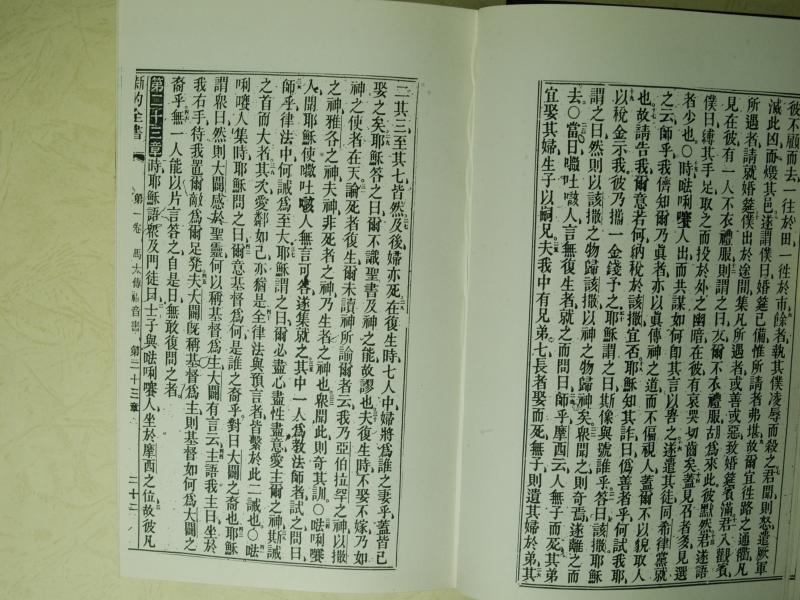 彼不顧而去一往於田一往於市餘者執其僕凌辱而殺之君聞則怒遣厥軍
滅此凶而燬其邑遂謂僕曰婚筵已備惟所請者弗堪故爾宜徃路之通衢凡
所遇者請就婚筵僕出於途間集凡所遇者或善或惡致婚筵賓滿君入觀賓
見在彼有一人不衣禮服則謂之曰友爾不衣禮服胡爲來此彼默然君遂語
僕曰縛其手足取之而投於外之幽暗在彼有哀哭切齒矣蓋見召者多見選
者少也○時㗣唎㘔人出而共謀如何即其言以咎之遂遣其徒同希律黨就
之云師乎我儕知爾乃眞者亦以眞傳神之道而不偏視人蓋爾不以貌取人
也故請告我爾意若何納稅於該撒宜否耶穌知其詐曰僞善者乎何試我耶
以稅金示我彼乃攜一金錢予之耶穌謂之曰斯像與號誰乎答曰該撒耶穌
謂之曰然則以該撒之物歸該撒以神之物歸神矣衆聞之則奇焉遂離之而
去○當日㘔吐㖡人言無復生者就之而問曰師乎摩西云人無子而死其弟
宜娶其婦生子以嗣兄夫我中有兄弟七長者娶而死無子則遺其婦於弟其
二其三至其七皆然及後婦亦死在復生時七人中婦將爲誰之妻乎蓋皆已
娶之矣耶穌答之曰爾不識聖書及神之能故謬也夫復生時不娶不嫁乃如
神之使者在天論死者復生爾未讀神所諭爾者云我乃亞伯拉罕之神以撒
之神雅各之神夫神非死者之神乃生者之神也衆聞此則奇其訓○㗣唎㘔
人聞耶穌使㘔吐㖡人無言可答遂集就之其中一人爲教法師者試之問曰
師乎律法中何誡爲至大耶穌謂之曰爾必盡心盡性盡意愛主爾之神此誡
之首而大者其次愛鄰如己亦猶是全律法與預言者皆繫於此二誡也○㗣
唎㘔人集時耶穌問之曰爾意基督爲何是誰之裔乎對曰大闢之裔也耶穌
謂衆曰然則大闢感於聖靈何以稱基督爲主大闢有言云主語我主曰坐於
我右手待我置爾敵爲爾足凳夫大闢旣稱基督爲主則基督如何爲大闢之
裔乎無一人能以片言答之自是日無敢復問之者
第二十三章時耶穌語衆及門徒曰士子與㗣唎㘔人坐於摩西之位故彼凡
新約全書 第一卷 馬太傳福音書 第二十三章 二十二